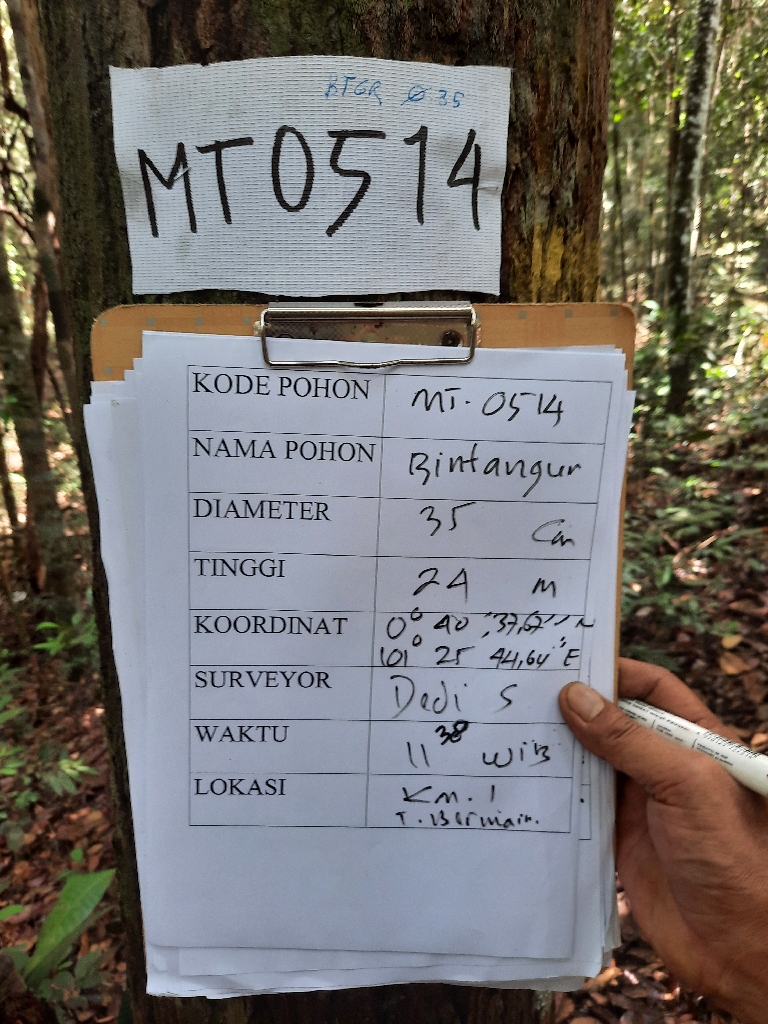 BTGR Ø 35
MT0514
KODE POHON MT. 0514
NAMA POHON Bintangur
DIAMETER 35 Cm
TINGGI 24 m
KOORDINAT 0° 40 '37,67'' N
101° 25 44,64" E
SURVEYOR Dedi S
WAKTU 11 38 WIB
LOKASI Km. 1
T. Bermain.